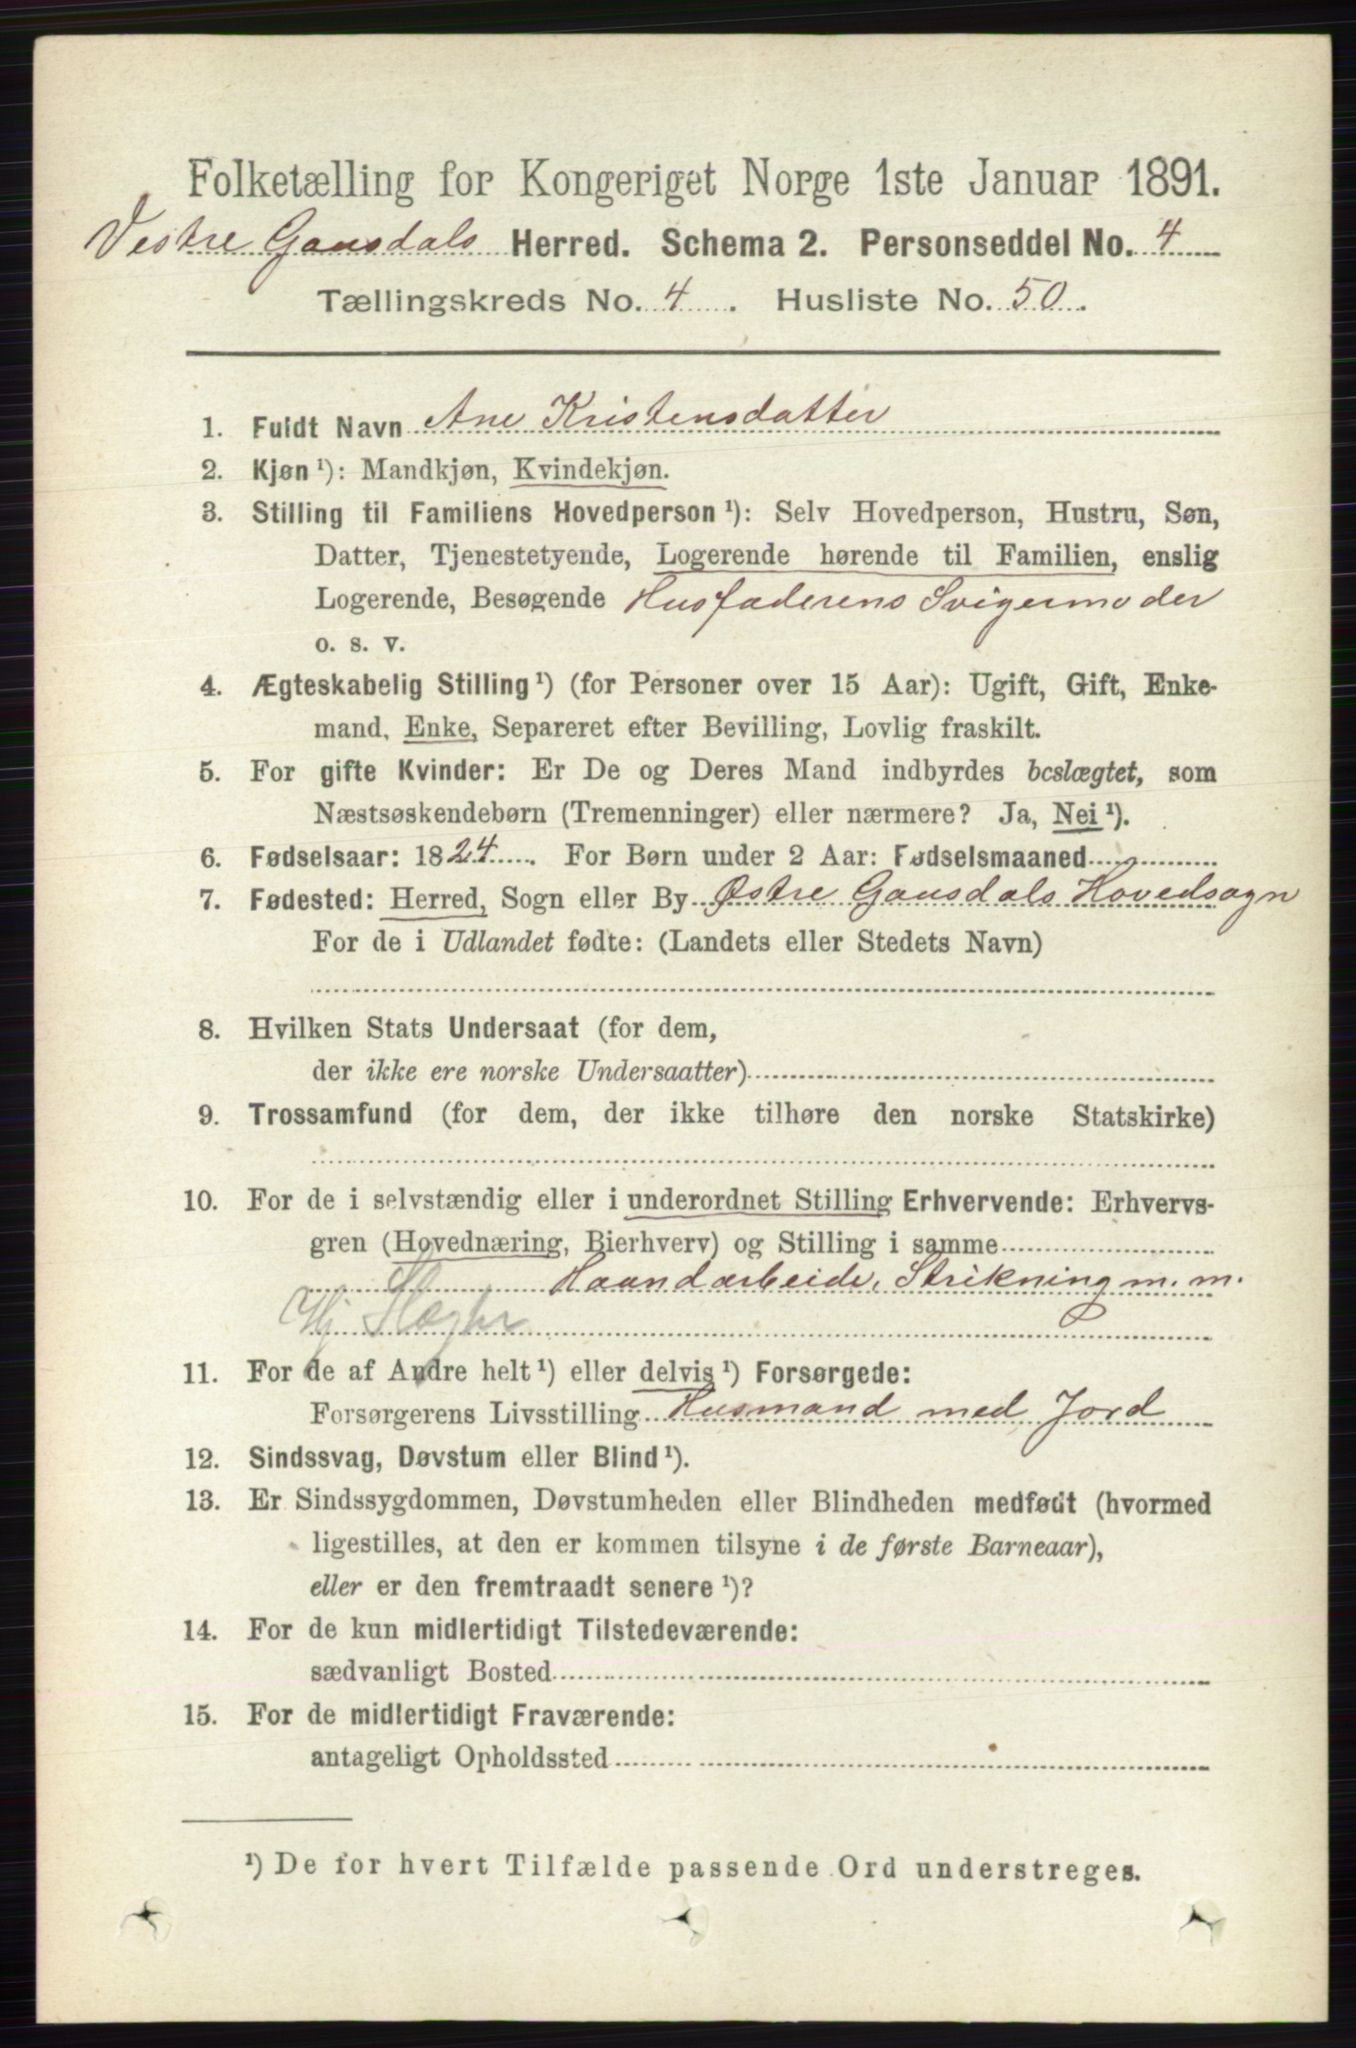 Folketælling for Kongeriget Norge 1ste Januar 1891.
Vestre Gausdals Herred. Schema 2. Personseddel No. 4
Tællingskreds No. 4. Husliste No. 50.
1. Fuldt Navn Ane Kristensdatter
2. Kjøn ¹): Mandkjøn, Kvindekjøn.
3. Stilling til Familiens Hovedperson ¹): Selv Hovedperson, Hustru, Søn,
Datter, Tjenestetyende, Logerende hørende til Familien, enslig
Logerende, Besøgende Husfaderens Svigermoder
o. s. v.
4. Ægteskabelig Stilling ¹) (for Personer over 15 Aar): Ugift, Gift, Enke-
mand, Enke, Separeret efter Bevilling, Lovlig fraskilt.
5. For gifte Kvinder: Er De og Deres Mand indbyrdes beslægtet, som
Næstsøskendebørn (Tremenninger) eller nærmere? Ja, Nei ¹).
6. Fødselsaar: 1824. For Børn under 2 Aar: Fødselsmaaned
7. Fødested: Herred, Sogn eller By Østre Gausdals Hovedsogn
For de i Udlandet fødte: (Landets eller Stedets Navn)
8. Hvilken Stats Undersaat (for dem,
der ikke ere norske Undersaatter)
9. Trossamfund (for dem, der ikke tilhøre den norske Statskirke)
10. For de i selvstændig eller i underordnet Stilling Erhvervende: Erhvervs-
gren (Hovednæring, Bierhverv) og Stilling i samme
Haandarbeide, Strikning m. m.
Hj
11. For de af Andre helt ¹) eller delvis ¹) Forsørgede:
Forsørgerens Livsstilling Husmand med Jord
12. Sindssvag, Døvstum eller Blind ¹).
13. Er Sindssygdommen, Døvstumheden eller Blindheden medfødt (hvormed
ligestilles, at den er kommen tilsyne i de første Barneaar),
eller er den fremtraadt senere ¹)?
14. For de kun midlertidigt Tilstedeværende:
sædvanligt Bosted
15. For de midlertidigt Fraværende:
antageligt Opholdssted
¹) De for hvert Tilfælde passende Ord understreges.